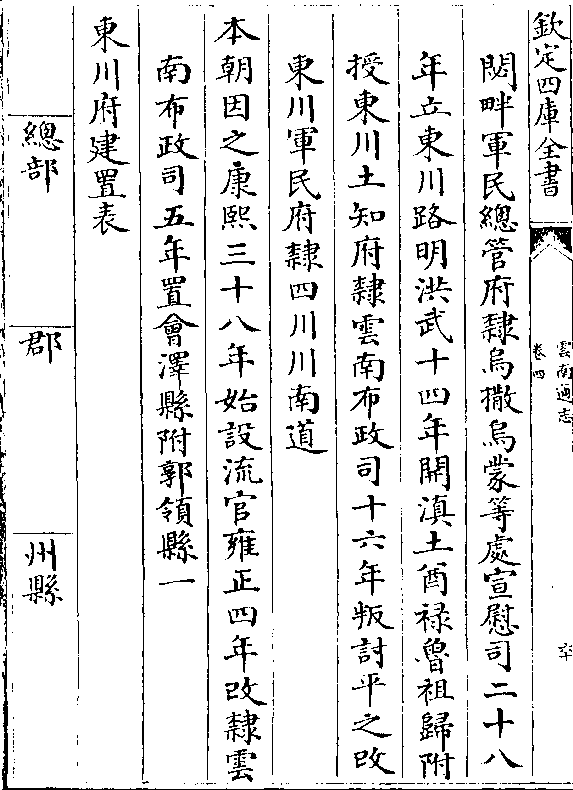 欽定四庫全書
雲南通志
卷四
閟畔軍民總管府隸烏撒烏蒙等處宣慰司二十八
年立東川路明洪武十四年開滇土酋祿魯祖歸附
授東川土知府隸雲南布政司十六年叛討平之改
東川軍民府隸四川川南道
本朝因之康熙三十八年始設流官雍正四年改隸雲
南布政司五年置會澤縣附郭領縣一
東川府建置表
總部
郡
州縣